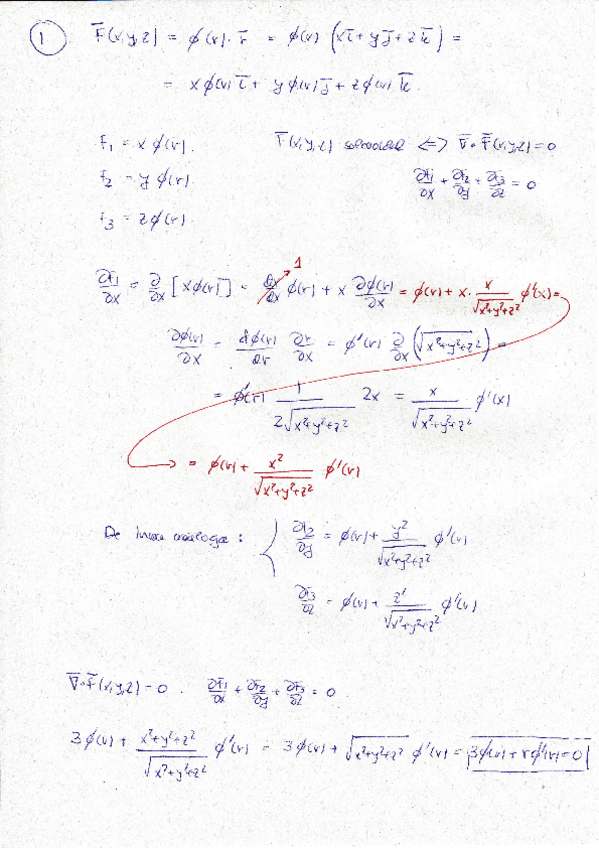 1 F̄(x,y,z) = ϕ(r)·r̄ = ϕ(r) (xī+yj̄+zk̄) =
= xϕ(r)ī + yϕ(r)j̄ + zϕ(r)k̄.
F₁ = xϕ(r). F̄(x,y,z) solenoidal ⇔ ∇̄·F̄(x,y,z)=0
F₂ = yϕ(r). ∂F₁/∂x + ∂F₂/∂y + ∂F₃/∂z = 0
F₃ = zϕ(r).
∂F₁/∂x = ∂/∂x [xϕ(r)] = ∂x/∂x 1 ϕ(r) + x ∂ϕ(r)/∂x = ϕ(r) + x· x/√(x²+y²+z²) ϕ'(x) =
∂ϕ(r)/∂x = dϕ(r)/dr ∂r/∂x = ϕ'(r) ∂/∂x (√(x²+y²+z²)) =
= ϕ'(r) 1/(2√(x²+y²+z²)) 2x = x/√(x²+y²+z²) ϕ'(x)
= ϕ(r) + x²/√(x²+y²+z²) ϕ'(r)
De : { ∂F₂/∂y = ϕ(r) + y²/√(x²+y²+z²) ϕ'(r)
∂F₃/∂z = ϕ(r) + z²/√(x²+y²+z²) ϕ'(r)
∇̄·F̄(x,y,z) = 0. ∂F₁/∂x + ∂F₂/∂y + ∂F₃/∂z = 0.
3ϕ(r) + (x²+y²+z²)/√(x²+y²+z²) ϕ'(r) = 3ϕ(r) + √(x²+y²+z²) ϕ'(r) = 3ϕ(r) + rϕ'(r) = 0